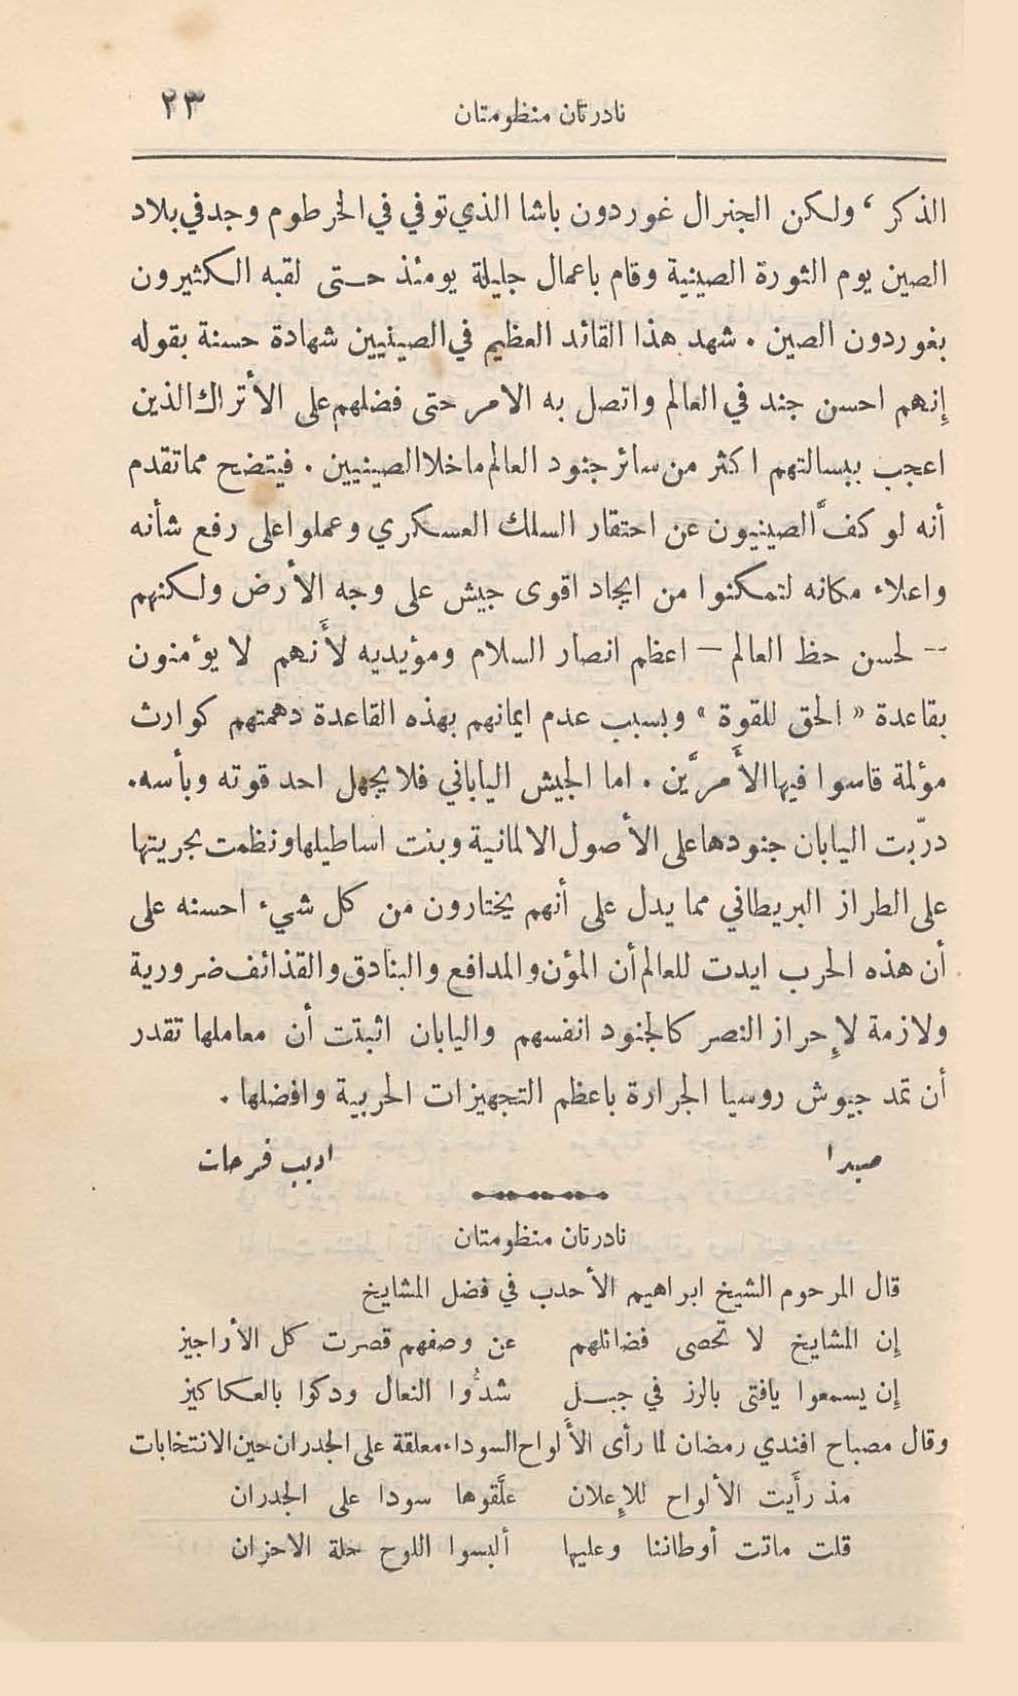 نادرتان منظومتان ٢٣
الذكر ، ولكن الجنرال غوردون باشا الذي توفي في الخرطوم وجد في بلاد
الصين يوم الثورة الصينية وقام باعمال جليلة يومئذ حتى لقبه الكثيرون
بغوردون الصين . شهد هذا القائد العظيم في الصينيين شهادة حسنة بقوله
إنهم احسن جند في العالم واتصل به الامر حتى فضلهم على الأتراك الذين
اعجب ببسالتهم اكثر من سائر جنود العالم ماخلا الصينيين . فيتضح مما تقدم
أنه لو كفَّ الصينيون عن احتقار السلك العسكري وعملوا على رفع شأنه
واعلاء مكانه لتمكنوا من ايجاد اقوى جيش على وجه الأرض ولكنهم
-- لحسن حظ العالم — اعظم انصار السلام ومؤيديه لأَنهم لا يؤمنون
بقاعدة « الحق للقوة » وبسبب عدم ايمانهم بهذه القاعدة دهمتهم كوارث
مؤلمة قاسوا فيها الأَمرَّين . اما الجيش الياباني فلا يجهل احد قوته وبأسه .
درّبت اليابان جنودها على الأصول الالمانية وبنت اساطيلها ونظمت بحريتها
على الطراز البريطاني مما يدل على أنهم يختارون من كل شيء احسنه على
أن هذه الحرب ايدت للعالم أن المؤن والمدافع والبنادق والقذائف ضرورية
ولازمة لإحراز النصر كالجنود انفسهم واليابان اثبتت أن معاملها تقدر
أن تمد جيوش روسيا الجرارة باعظم التجهيزات الحربية وافضلها .
صيدا اديب فرحات
نادرتان منظومتان
قال المرحوم الشيخ ابراهيم الأحدب في فضل المشايخ
إن المشايخ لا تحصى فضائلهم عن وصفهم قصرت كل الأراجيز
إن يسمعوا يافتى بالرز في جبل شدُّوا النعال ودكوا بالعكاكيز
وقال مصباح افندي رمضان لما رأى الأَلواح السوداء معلقة على الجدران حين الانتخابات
مذ رأَيت الألواح للإعلان علَّقوها سودا على الجدران
قلت ماتت أوطاننا وعليها ألبسوا اللوح حلة الاحزان